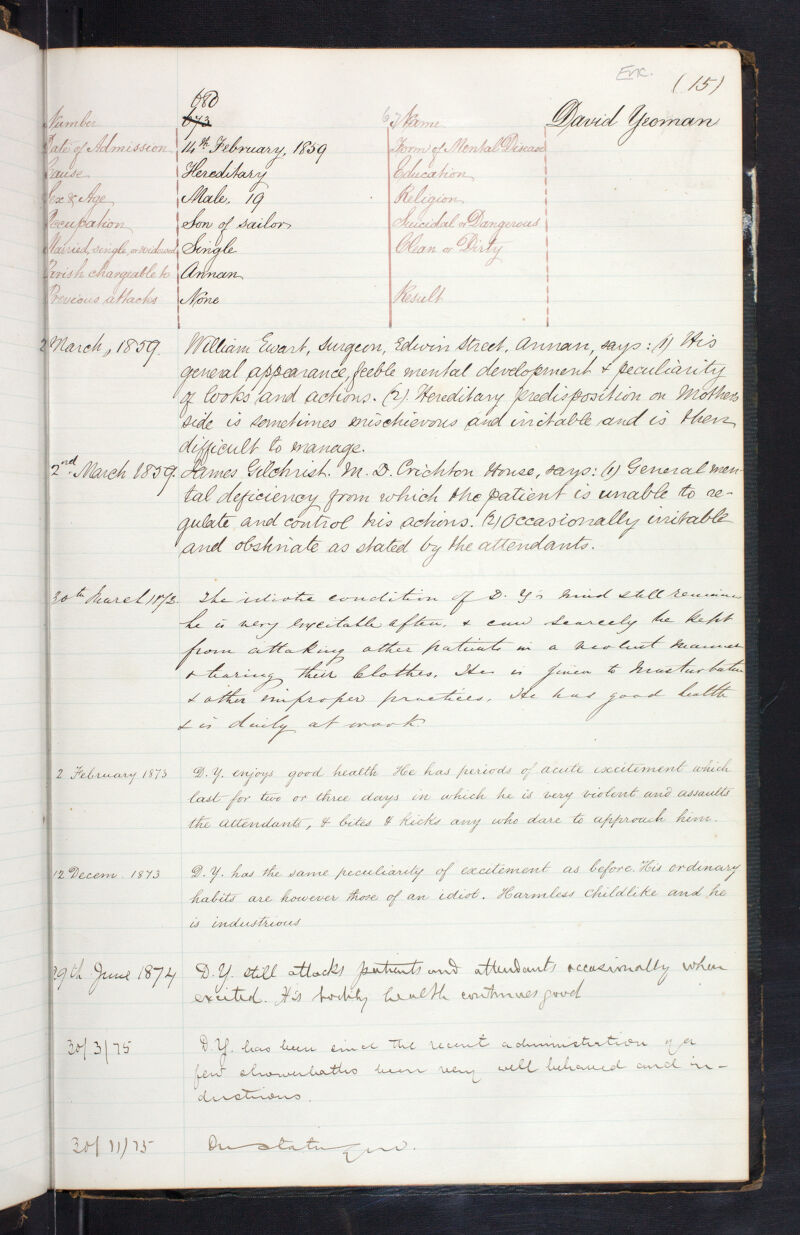 Enc.
(15)
680
Number 673 Name David Yeoman
Date of Admission 14th February, 1859 Form of Mental Disease
Cause Hereditary Education
Sex & Age Male, 19 Religion
Occupation Son of sailor Suicidal or Dangerous
Married, single, or widowed Single Clean or Dirty
Parish chargeable to Annan
Previous attacks None Result
2 March, 1859. William Ewart, surgeon, Edwin Street, Annan, says: (1) His
general appearance, feeble mental development & peculiarity
of looks and actions. (2). Hereditary predisposition on Mothers
side is sometimes mischievous and irritable and is then
difficult to manage.
2nd March 1859. James Gilchrist. M.D. Crichton House, says: (1) General men-
tal deficiency from which the patient is unable to re-
gulate and control his actions. (2) Occasionally irritable
and obstinate as stated by the attendants.
30th March The idiotic condition of D. Y's mind still remains
he is very excitable often, & can scarcely be kept
from attaking other patients in a violent manner
& tearing their clothes. He is given to Masturbation
& other improper practices. He has good health
& is daily at work
2 February 1873 D.Y. enjoys good health He has periods of acute excitement which
last for two or three days in which he is very violent and assaults
the attendants, & bites & kicks any who dare to approach him.
12 Decem. 1873 D.Y. has the same peculiarity of excitement as before. His ordinary
habits are however those of an idiot. Harmless childlike and he
is industrious
29th June 1874 D.Y. still attacks patients and attendants occasionally when
excited. His bodily health continues good
30/3/75 D.Y. has been since the recent administration of a
few showerbaths been very well behaved and in-
dustrious.
30/11/75 In statu quo.